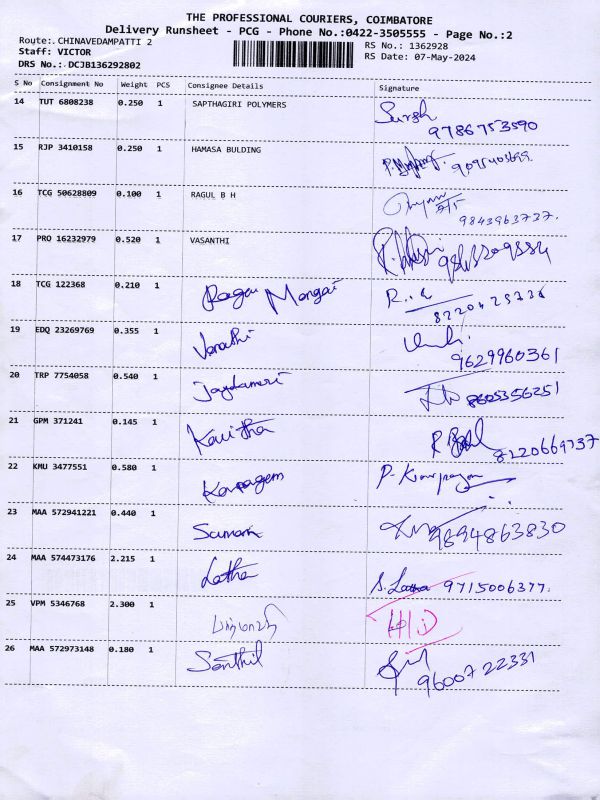 THE PROFESSIONAL COURIERS, COIMBATORE
Delivery Runsheet - PCG - Phone No.:0422-3505555 - Page No.:2
Route:.CHINAVEDAMPATTI 2 RS No.: 1362928
Staff: VICTOR RS Date: 07-May-2024
DRS No.: DCJB136292802
S No Consignment No Weight PCS Consignee Details Signature
14 TUT 6808238 0.250 1 SAPTHAGIRI POLYMERS Suresh
9786753590
15 RJP 3410158 0.250 1 HAMASA BULDING
16 TCG 50628809 0.100 1 RAGUL B H
9843963737.
17 PRO 16232979 0.520 1 VASANTHI
18 TCG 122368 0.210 1 Ragu Mangai
19 EDQ 23269769 0.355 1 Vanathi
9629960361
20 TRP 7754058 0.540 1
21 GPM 371241 0.145 1 Kavitha
8220669737
22 KMU 3477551 0.580 1 Kanagem
23 MAA 572941221 0.440 1 Suman
9894863830
24 MAA 574473176 2.215 1 Latha S. Latha 9715006377.
25 VPM 5346768 2.300 1
26 MAA 572973148 0.180 1 Senthil
9600722331